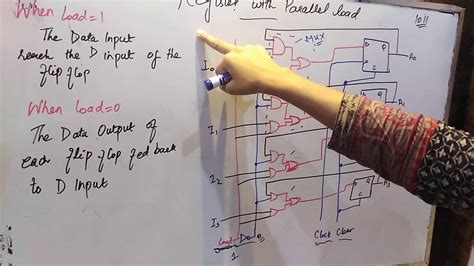 Register with Parallel load
When Load=1
The Data Input
reach the D input of the
flip flop
When Load=0
The Data Output of
each flip flop fed back
to D Input
MUX
1011
D
C
A0
I0
I1
I2
I3
Load
1
0
Clock Clear